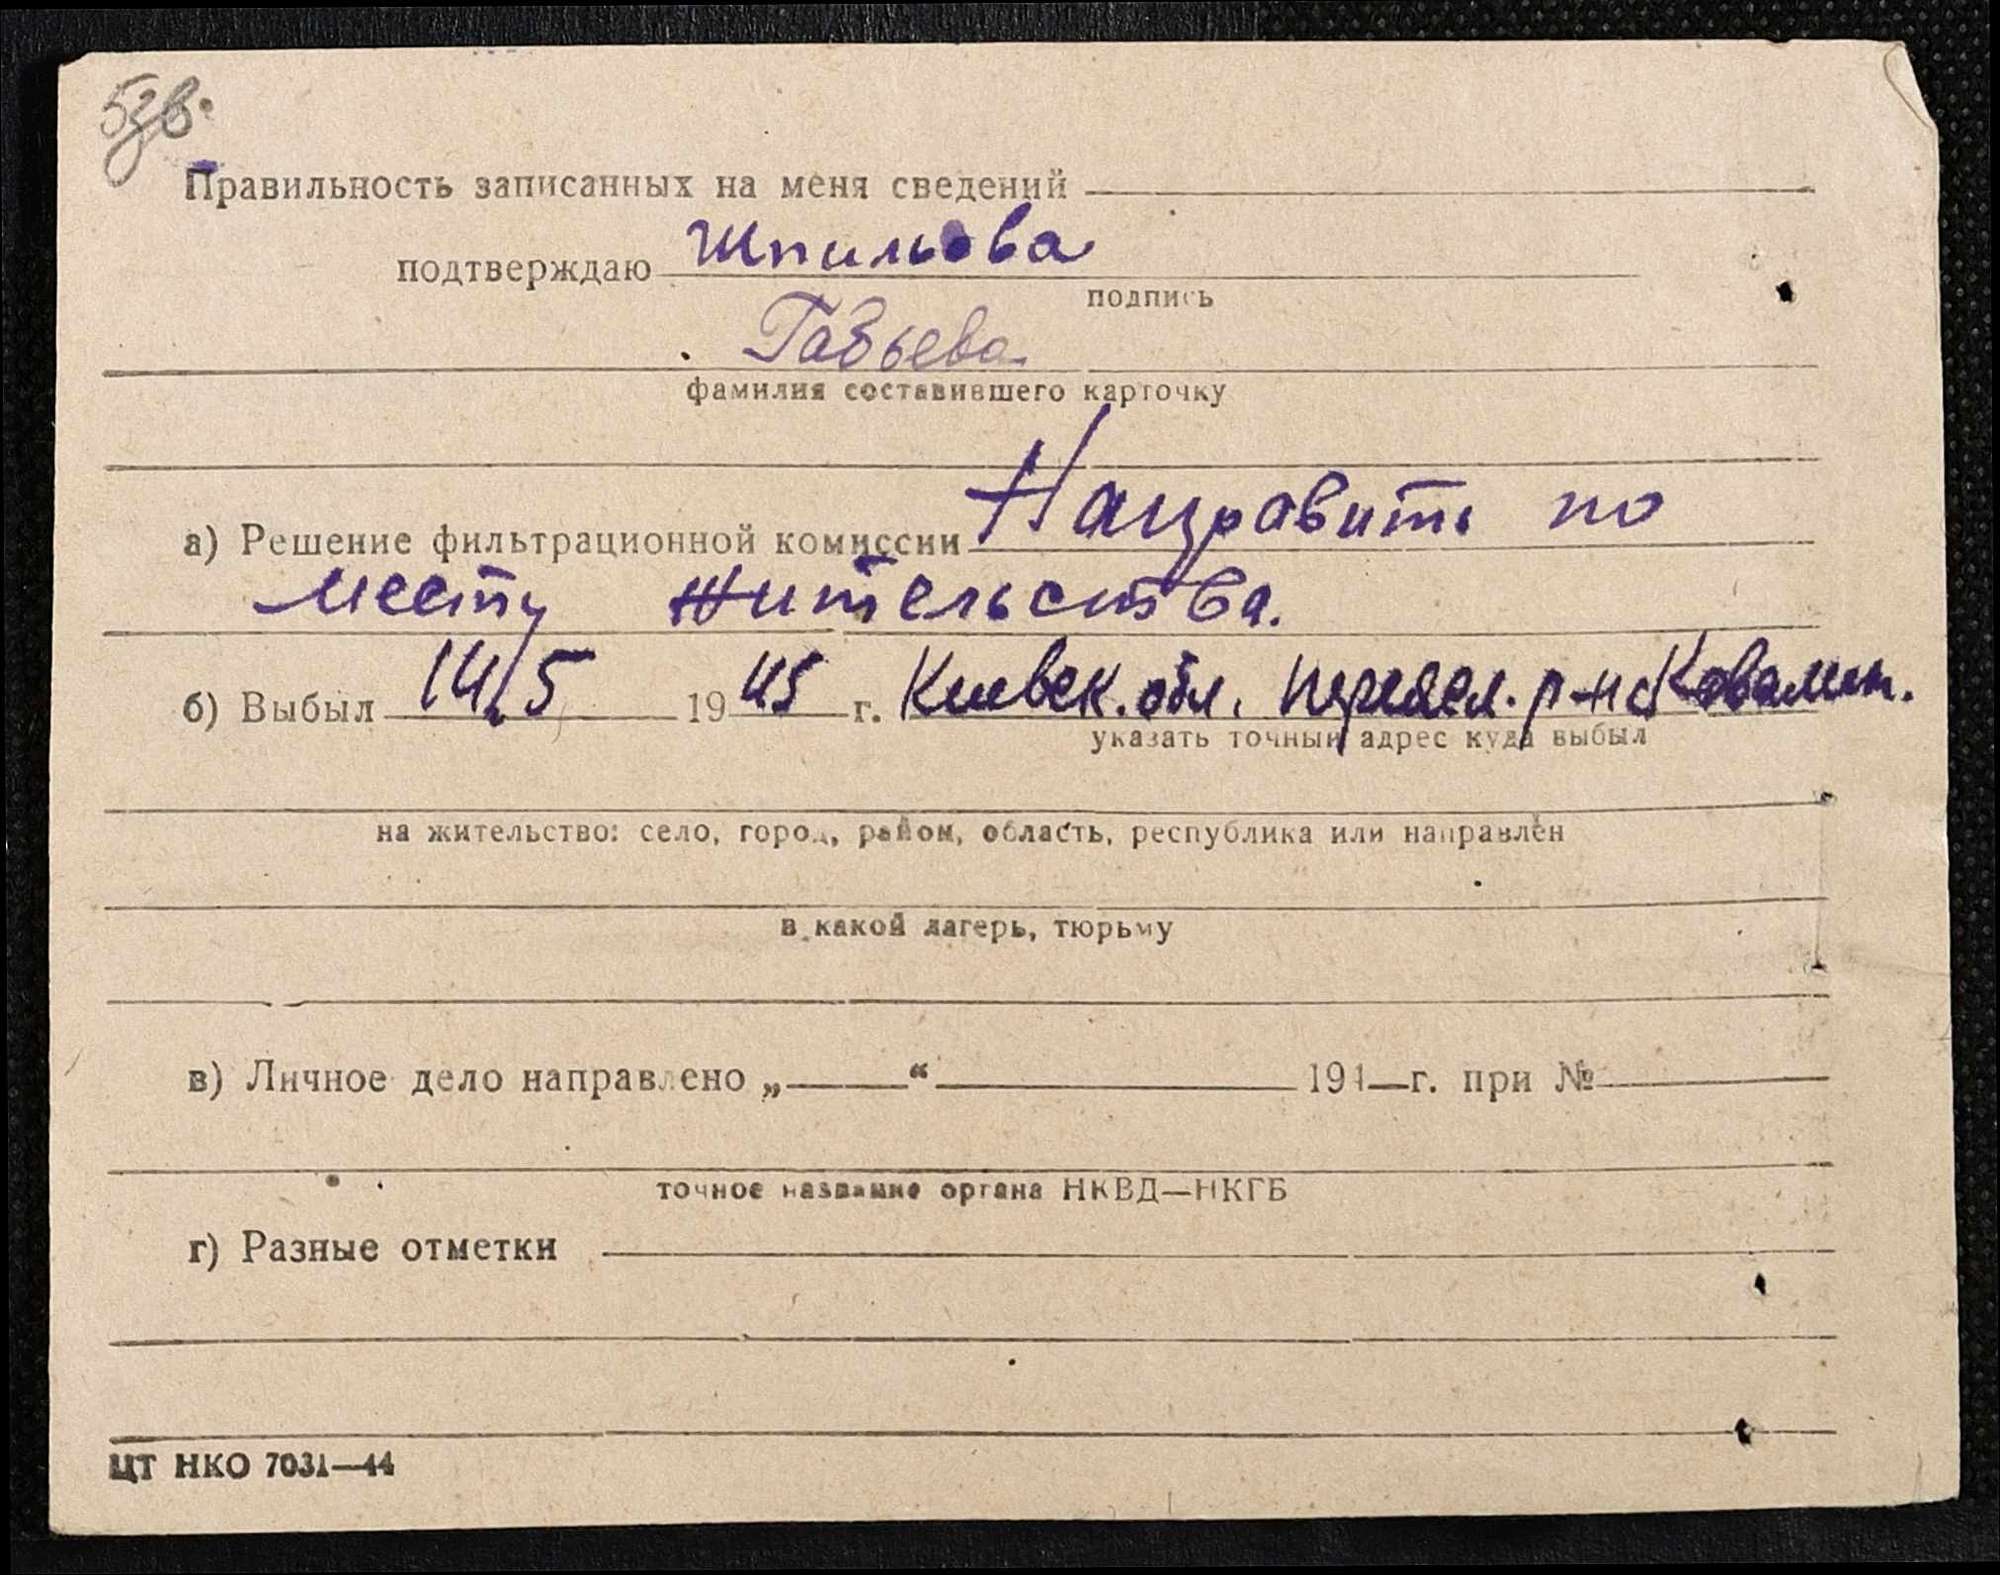 Правильность записанных на меня сведений
подтверждаю Шпильова
подпись
Габьева
фамилия составившего карточку
а) Решение фильтрационной комиссии Направить по
месту жительства.
б) Выбыл 14/5 1945 г. Киевск. обл. Переясл. р-н с Ковалин.
указать точный адрес куда выбыл
на жительство: село, город, район, область, республика или направлен
в какой лагерь, тюрьму
в) Личное дело направлено „ “ 194 г. при №
точное название органа НКВД—НКГБ
г) Разные отметки
ЦТ НКО 7031—44